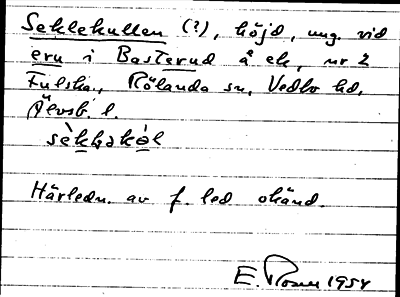 Seklekullen (?), höjd, ung. vid
eru i Basterud å ek, nr 2
Fulska, Rölanda sn, Vedbo hd,
Älvsb. l.
Härledn. av f. led okänd.
E. Rosen 1954